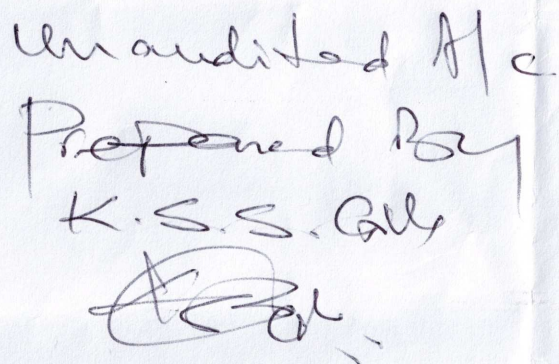 Unaudited A/c
Prepared By
K.S.S.